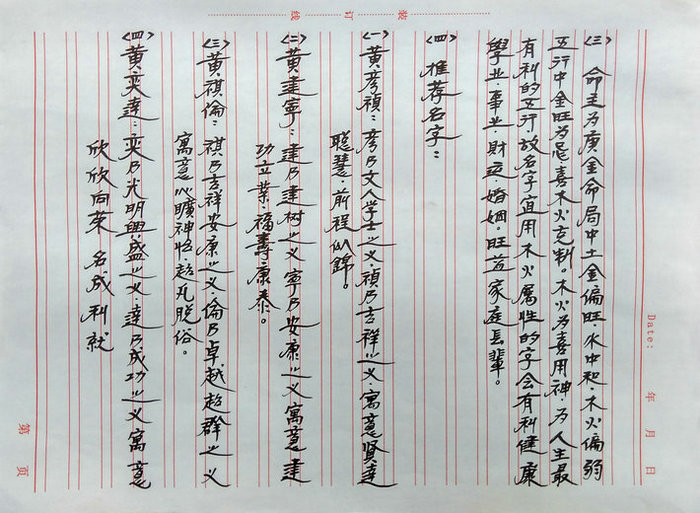 装订线
Date: 年 月 日
〈三〉命主为庚金命局中土金偏旺.水中和.木火偏弱
五行中金旺为忌喜木火克制。木火为喜用神.为人生最
有利的五行.故名字宜用木火属性的字会有利健康
學业事业.財运.婚姻.旺益家庭長辈。
〈四〉推荐名字：
〈一〉黄彦禎：彦乃文人学士之义.禎乃吉祥之义.寓意贤達
聪慧.前程似錦。
〈二〉黄建寧：建乃建树之义寧乃安康之义寓意建
功立業.福壽康泰。
〈三〉黄祺倫：祺乃吉祥安康之义.倫乃卓越超群之义
寓意心曠神怡.超凡脱俗。
〈四〉黄奕達：奕乃光明興盛之义.達乃成功之义寓意
欣欣向荣 名成利就
第 页